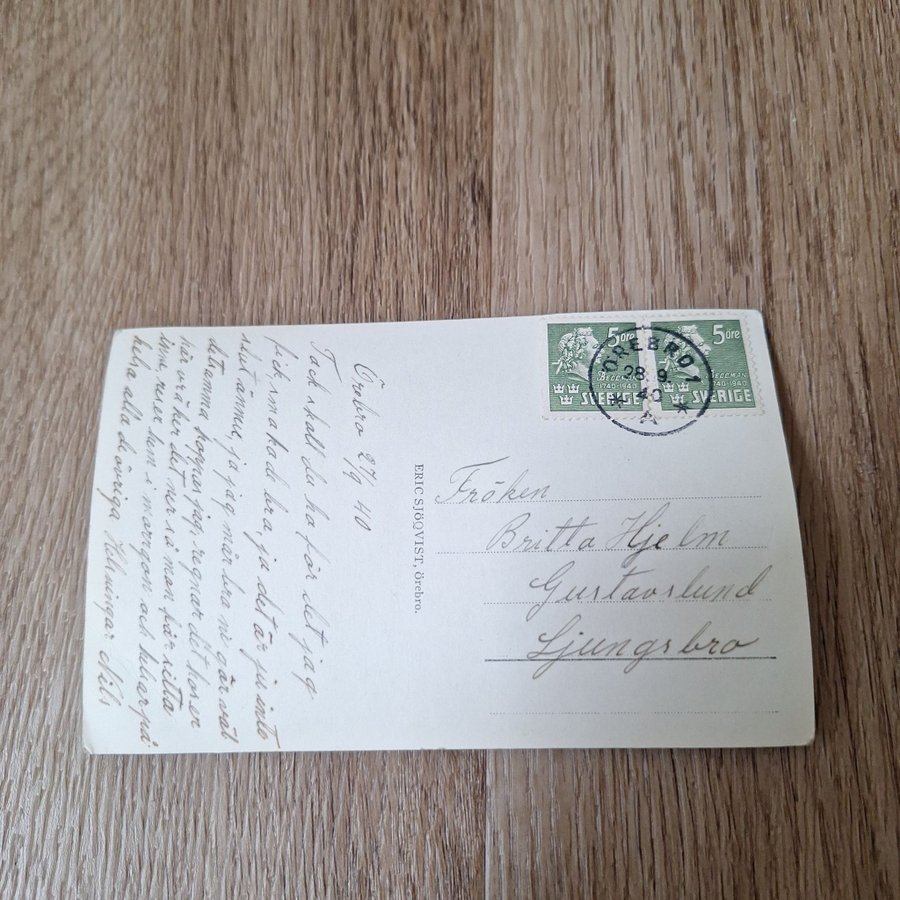 Örebro 27/9 40
Tack skall du ha för det jag
fick smaka de bra, ja det är ju inte
sist ännu, ja jag mår bra ni gör väl
detamma hoppas jag, regnar det hos er
här öräker det ner så man får sitta
inne, reser hem i morgon och
hela alla de övriga Helsningar Nils
ERIC SJÖQVIST, Örebro.
5 ÖRE
BELLMAN
1740-1940
SVERIGE
5 ÖRE
BELLMAN
1740-1940
SVERIGE
ÖREBRO 1
28 9
40
Fröken
Britta Hjelm
Gustavslund
Ljungsbro